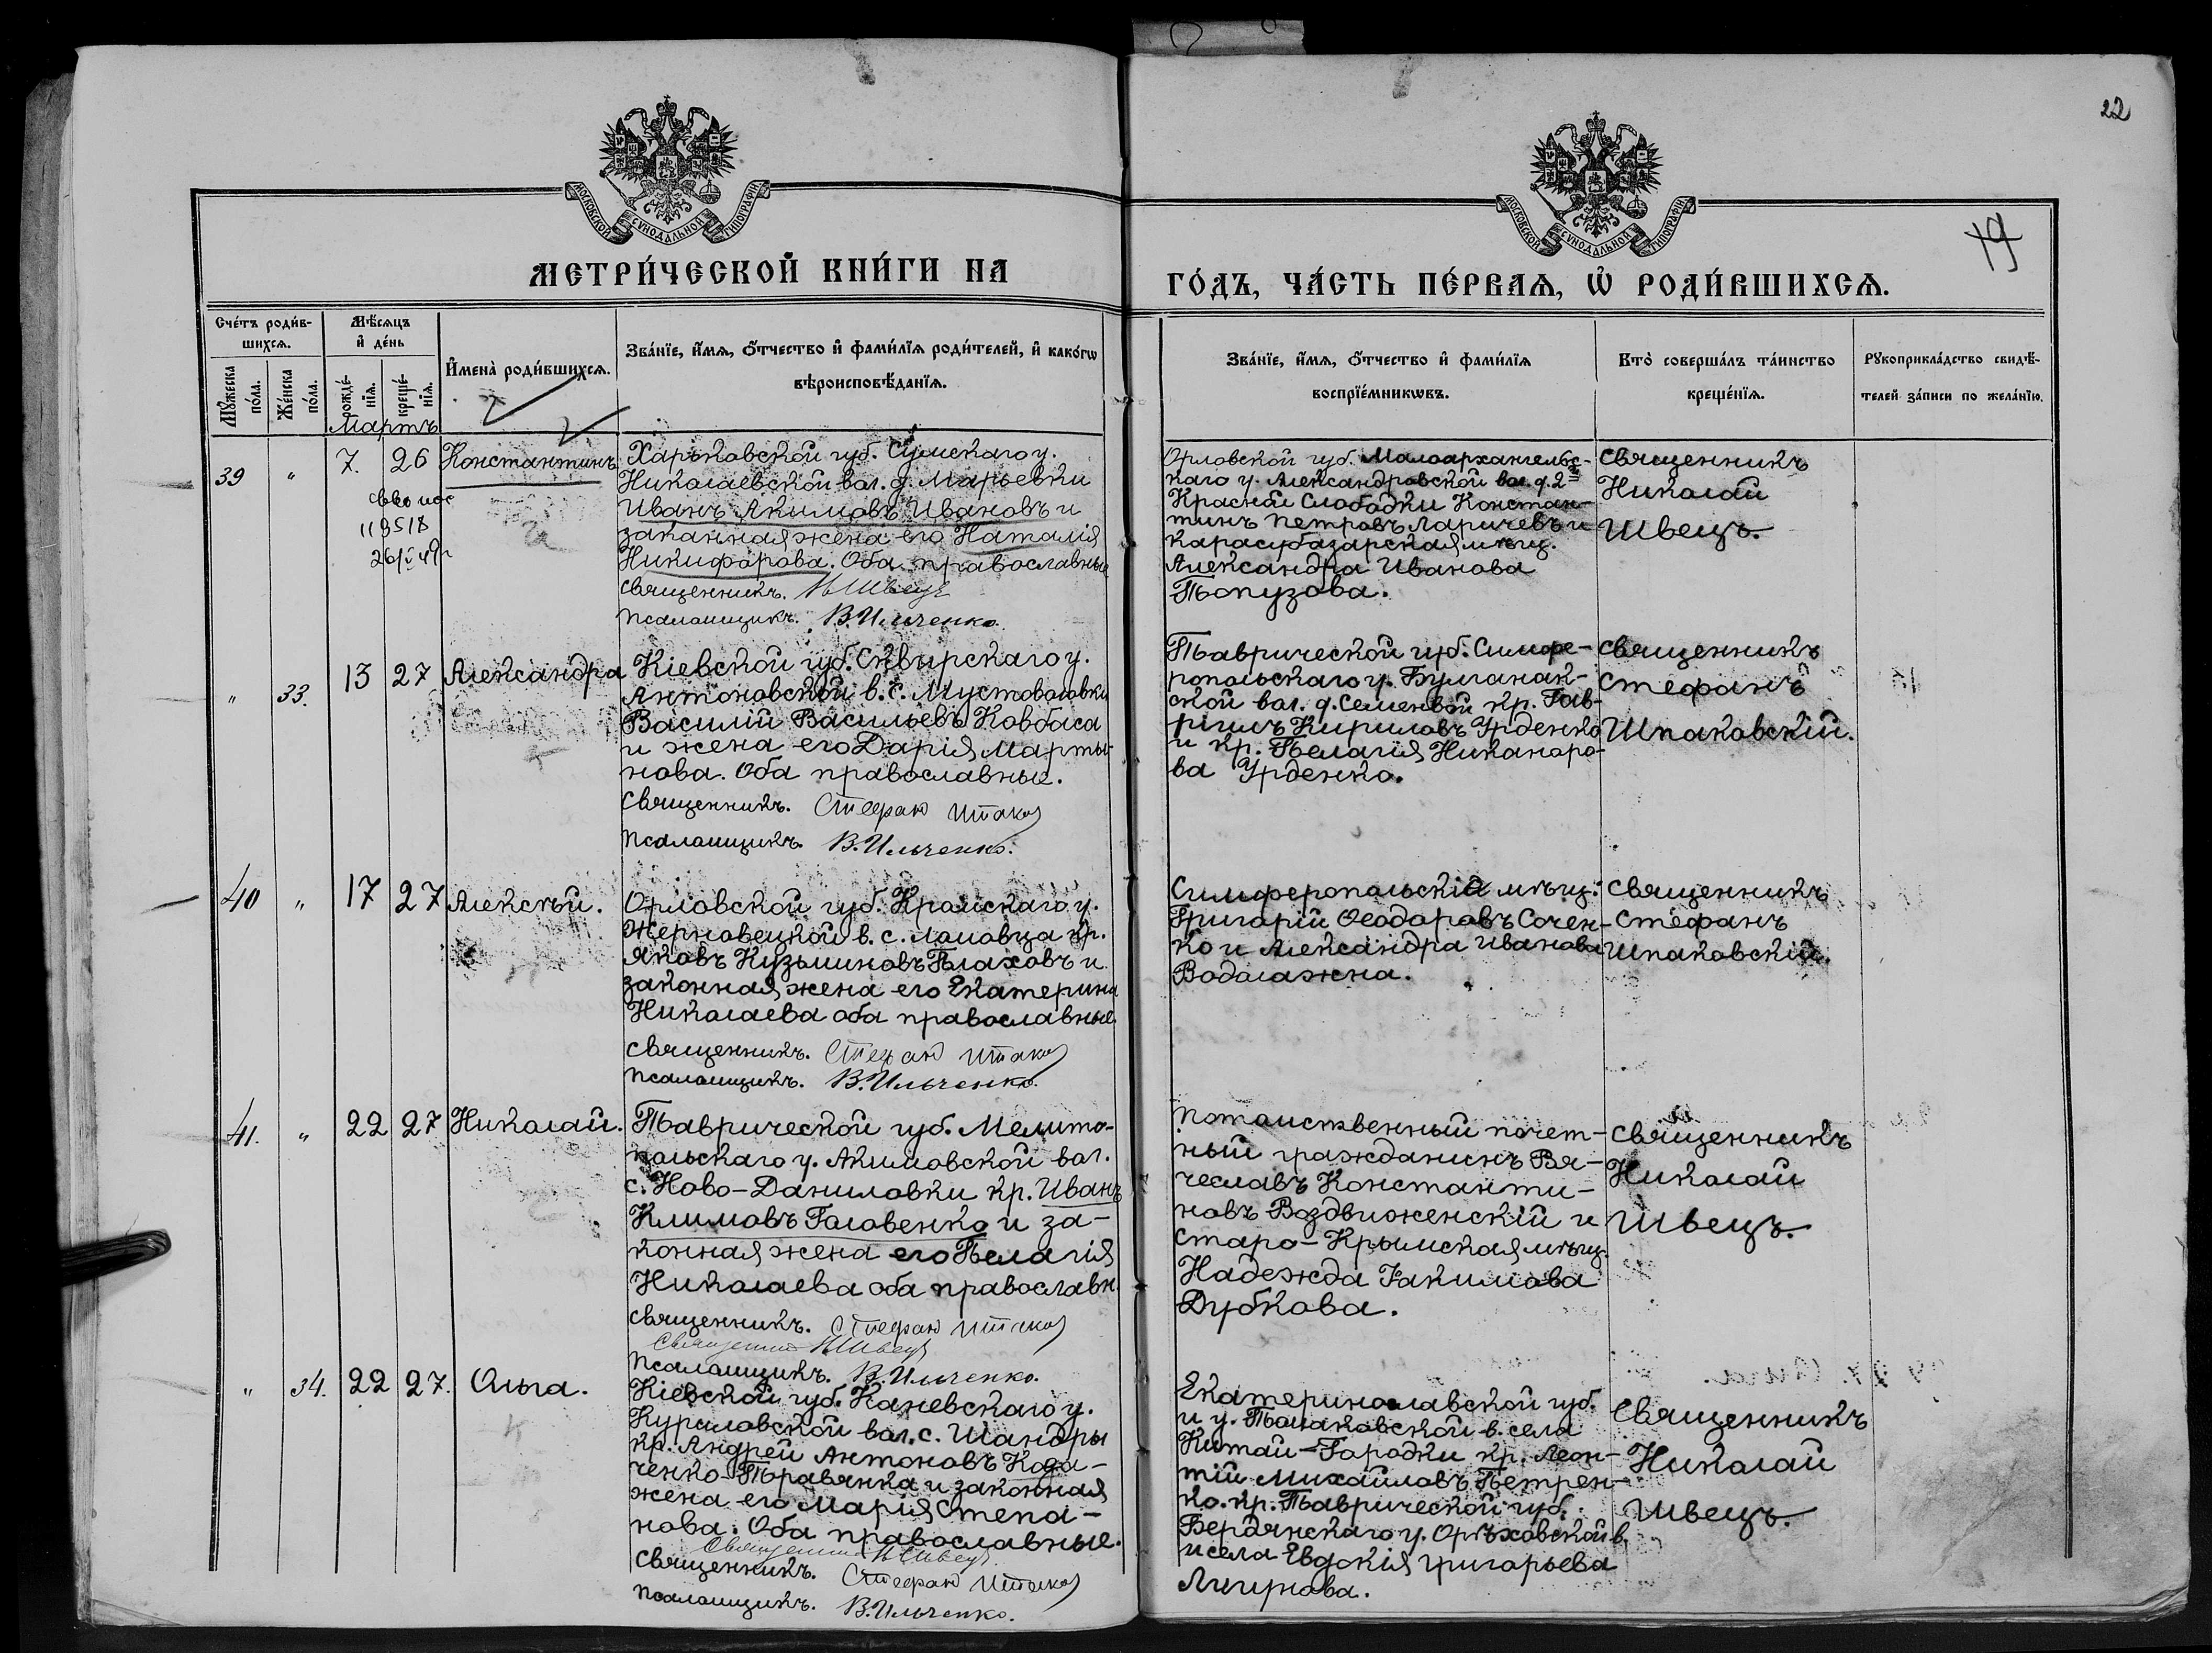 22
19
МОСКОВСКОЙ СУНОДАЛЬНОЙ ТИПОГРАФІИ
МОСКОВСКОЙ СУНОДАЛЬНОЙ ТИПОГРАФІИ
МЕТРИ́ЧЕСКОЙ КНИ́ГИ НА
ГО́ДЪ, ЧА́СТЬ ПЕ́РВАѦ, Ѡ҆ РОДИ́ВШИХСѦ.
Сче́тъ роди́в-
шихсѧ.
Мꙋ́жеска
по́ла.
Же́нска
по́ла.
Мѣ́сѧцъ
и҆ де́нь
рожде́-
нїѧ.
креще́-
нїѧ.
И҆мена̀ роди́вшихсѧ.
Зва́нїе, и҆́мѧ, ѻ҆́тчество и҆ фами́лїѧ роди́телей, и҆ како́гѡ
вѣроисповѣ́данїѧ.
Зва́нїе, и҆́мѧ, ѻ҆́тчество и҆ фами́лїѧ
воспрїе́мникѡвъ.
Кто̀ соверша́лъ та́инство
креще́нїѧ.
Рꙋкоприкла́дство свидѣ́-
телей за́писи по жела́нїю.
Мартъ
39
"
7.
26
Константинъ
119518
Харьковской губ. Сумскаго у.
Николаевской вол. д. Марьевки
Иванъ Акимовъ Ивановъ и
законная жена его Наталія
Никифорова. Оба православные
Священникъ. Н Швецъ
Псаломщикъ. В. Ильченко.
Орловской губ. Малоархангельс-
каго у. Александровской вол. д. 2й
Красной Слободки Констан-
тинъ Петровъ Ларичевъ и
карасубазарская мѣщ.
Александра Иванова
Топузова.
Священникъ
Николай
Швецъ.
"
33.
13
27
Александра
Кіевской губ. Сквирскаго у.
Антоновской в. с. Мустоваловки
Василій Васильевъ Ковбаса
и жена его Дарія Марты-
нова. Оба православные.
Священникъ. Стефан Шпаков
Псаломщикъ. В. Ильченко.
Таврической губ. Симфе-
ропольскаго у. Булганак-
ской вол. д. Семеновой кр. Гав-
ріилъ Кириловъ Урденко
и кр. Пелагія Никаноро-
ва Урденко.
Священникъ
Стефанъ
Шпаковскій.
40
"
17
27
Алексѣй.
Орловской губ. Кромскаго у.
Жерновецкой в. с. Ломовца кр.
Яковъ Кузьминовъ Плаховъ и
законная жена его Екатерина
Николаева оба православные.
Священникъ. Стефан Шпаков
Псаломщикъ. В. Ильченко.
Симферопольскіе мѣщ.:
Григорій Ѳеодоровъ Сочен-
ко и Александра Иванова
Водолажна.
Священникъ
Стефанъ
Шпаковскій.
41.
"
22
27
Николай.
Таврической губ. Мелито-
польскаго у. Акимовской вол.
с. Ново-Даниловки кр. Иванъ
Климовъ Головенко и за-
конная жена его Пелагія
Николаева оба православн.
Священникъ. Стефан Шпаков
Священник Н Швецъ
Псаломщикъ. В. Ильченко.
Потомственный почет-
ный гражданинъ Вя-
чеславъ Константи-
новъ Воздвиженскій и
Старо-Крымская мѣщ.
Надежда Іакимова
Дубкова.
Священникъ
Николай
Швецъ.
"
34.
22
27.
Ольга.
Кіевской губ. Каневскаго у.
Куриловской вол. с. Шандры
кр. Андрей Антоновъ Кода-
ченко-Правянка и законная
жена его Марія Степа-
нова. Оба православные.
Священник Н Швецъ
Священникъ. Стефан Шпаков
Псаломщикъ. В. Ильченко.
Екатеринославской губ.
и у. Томаковской в. села
Китай-Городки кр. Леон-
тій Михайловъ Петрен-
ко. кр. Таврической губ.
Бердянскаго у. Орѣховской в.
и села Евдокія Григорьева
Священникъ
Николай
Швецъ.